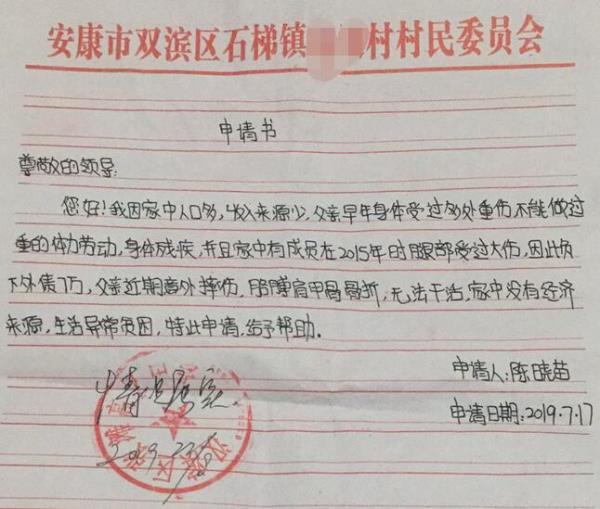 安康市双滨区石梯镇 村村民委员会
申请书
尊敬的领导:
您好!我因家中人口多,收入来源少,父亲早年身体受过多处重伤不能做过
重的体力劳动,身体残疾,并且家中有成员在2015年时腿部受过大伤,因此负
下外债7万,父亲近期意外摔伤,胳膊肩甲骨骨折,无法干活,家中没有经济
来源,生活异常贫困,特此申请,给予帮助。
申请人:陈晓苗
申请日期:2019.7.17
情况属实